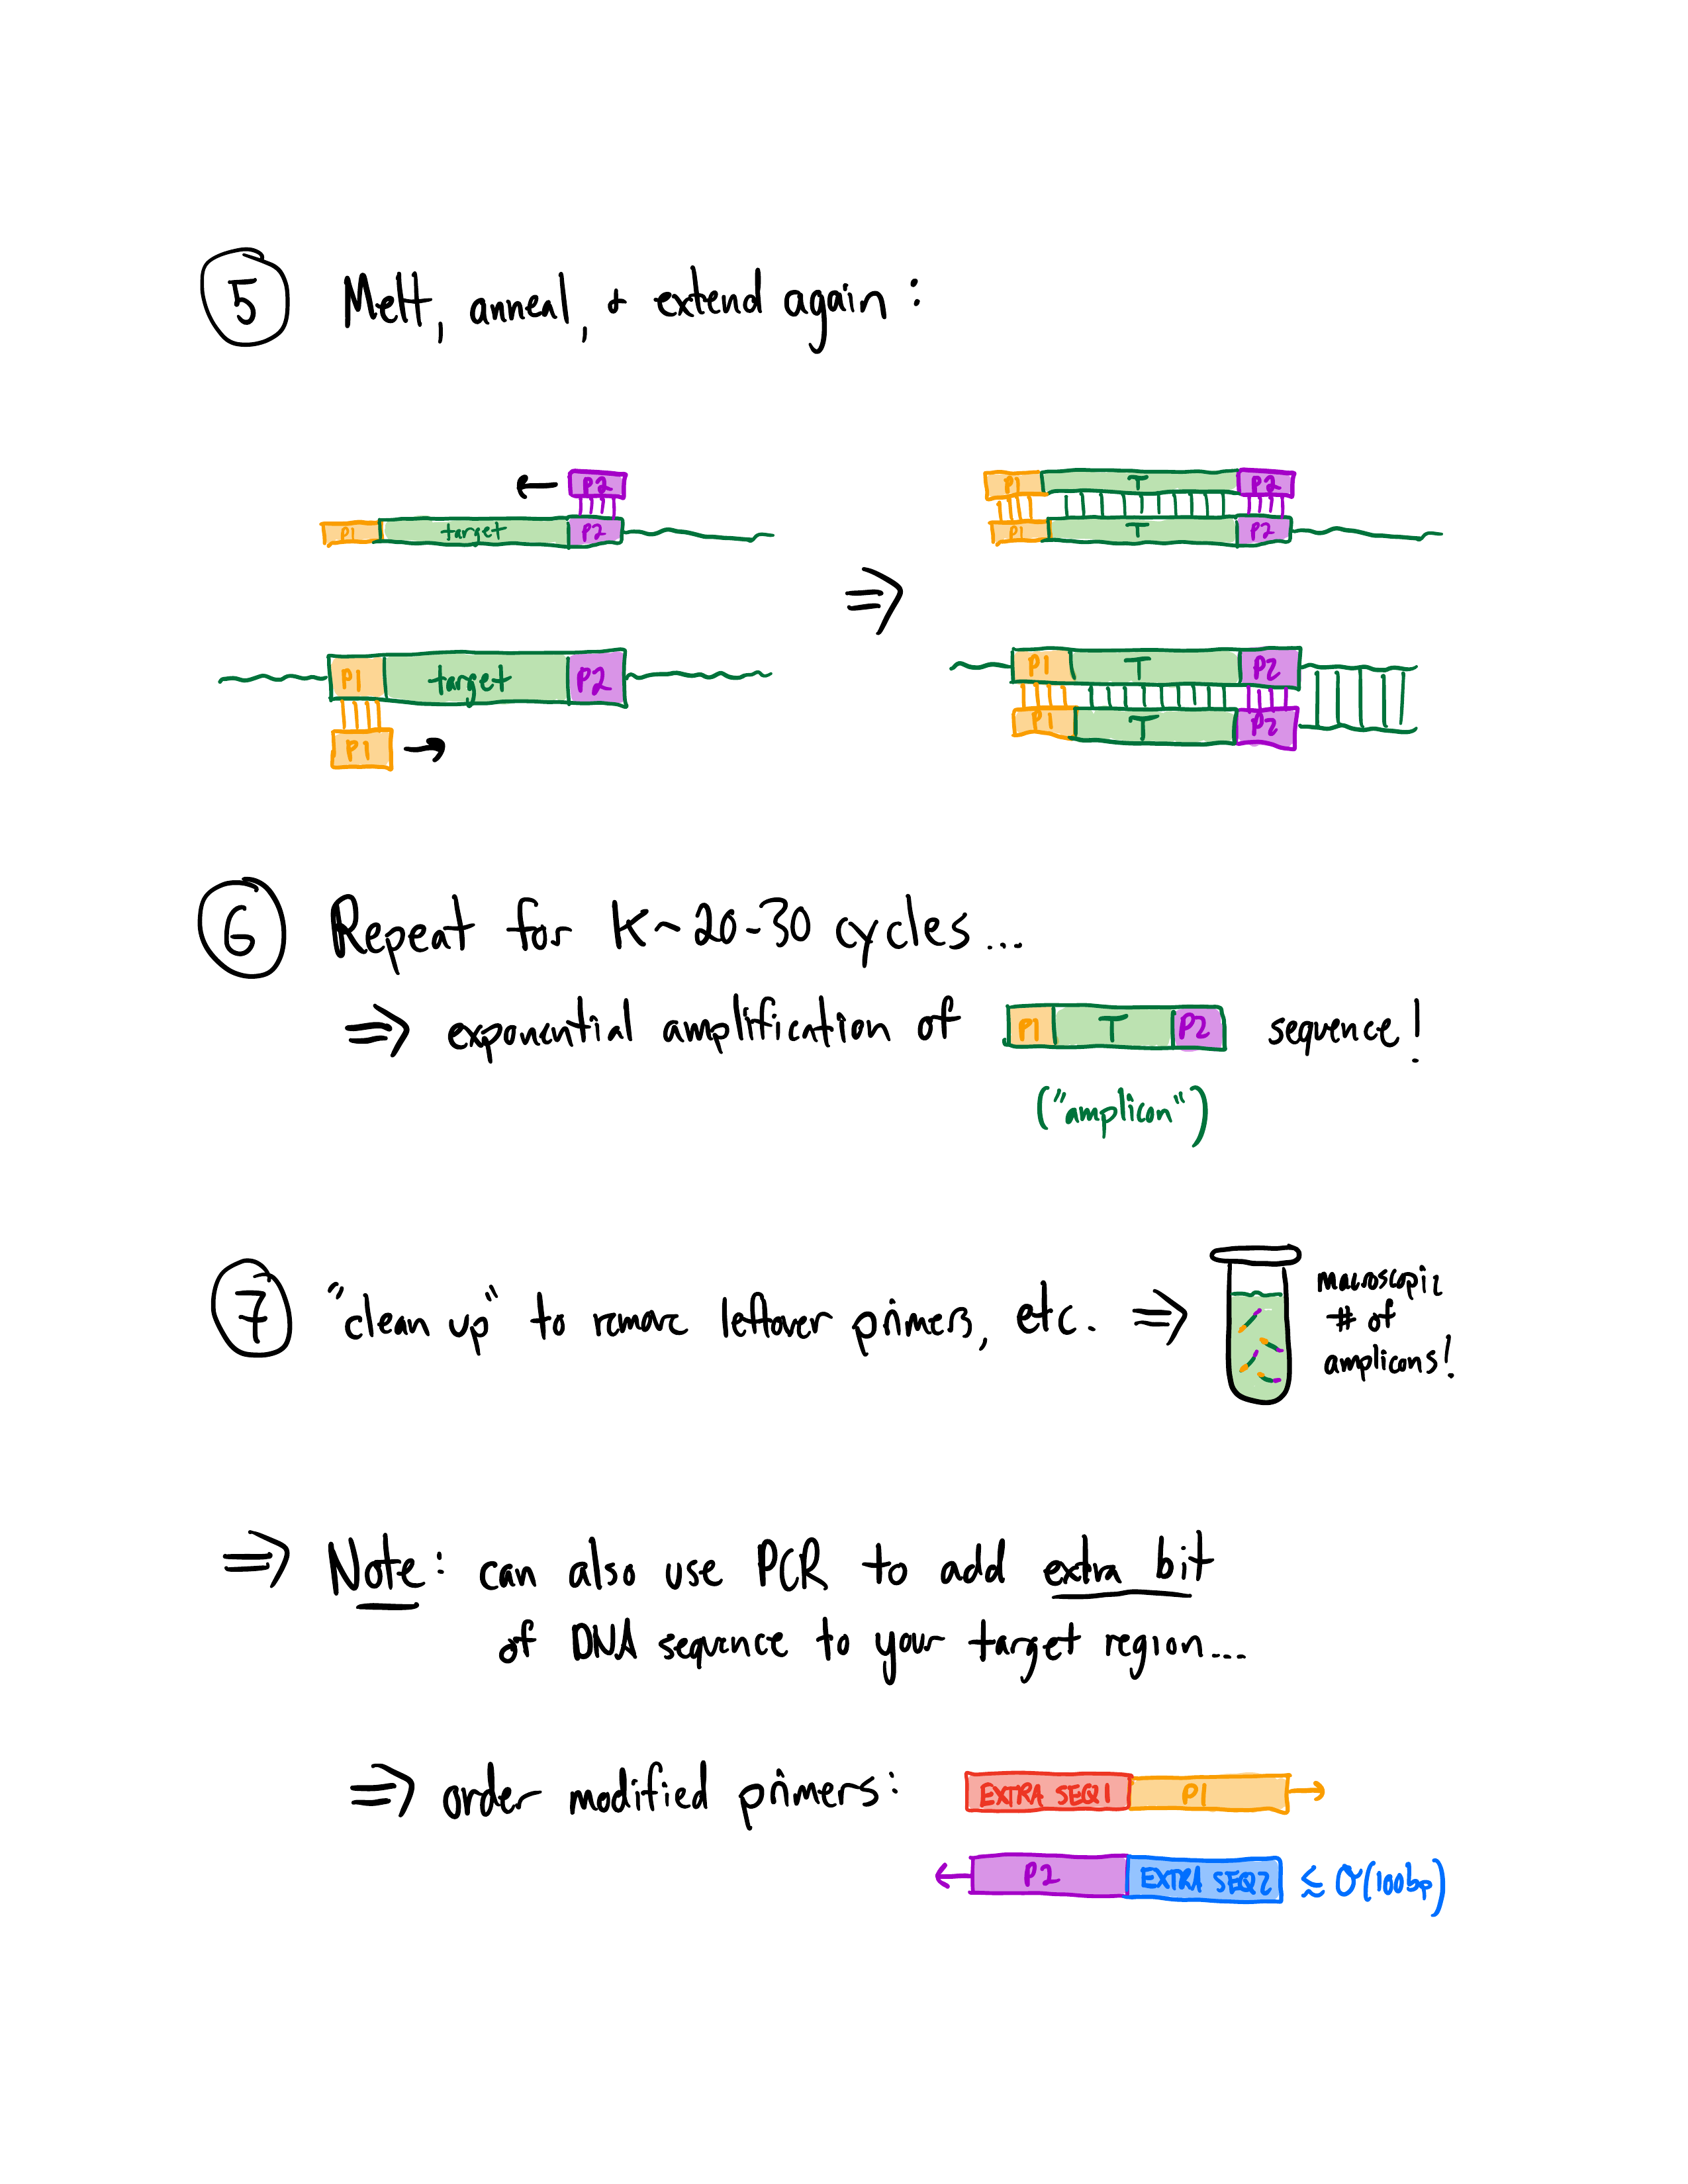 5 Melt, anneal, & extend again:
P2
P1 target P2
P1 T P2
P1 T P2
⇒
P1 target P2
P1
P1 T P2
P1 T P2
6 Repeat for K~20-30 cycles...
⇒ exponential amplification of P1 T P2 sequence!
("amplicon")
7 "clean up" to remove leftover primers, etc. ⇒
macroscopic
# of
amplicons!
⇒ Note: can also use PCR to add extra bit
of DNA sequence to your target region...
⇒ order modified primers: EXTRA SEQ1 P1
P2 EXTRA SEQ2 ≲ O(100bp)